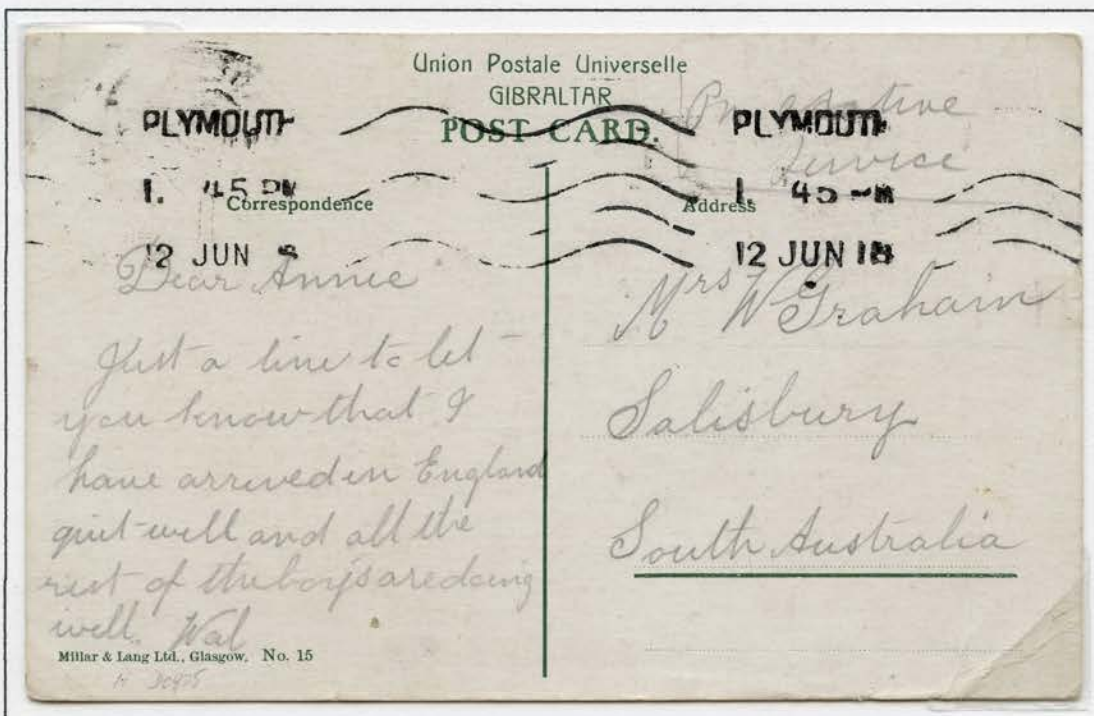 Union Postale Universelle
GIBRALTAR
POST CARD.
On active
service
PLYMOUTH
1. 45 PM
12 JUN
PLYMOUTH
1. 45 PM
12 JUN 18
Correspondence
Address
Dear Annie
Just a line to let
you know that I
have arrived in England
quit well and all the
rest of the boys are doing
well. Wal
Mrs W Graham
Salisbury
South Australia
Millar & Lang Ltd., Glasgow. No. 15